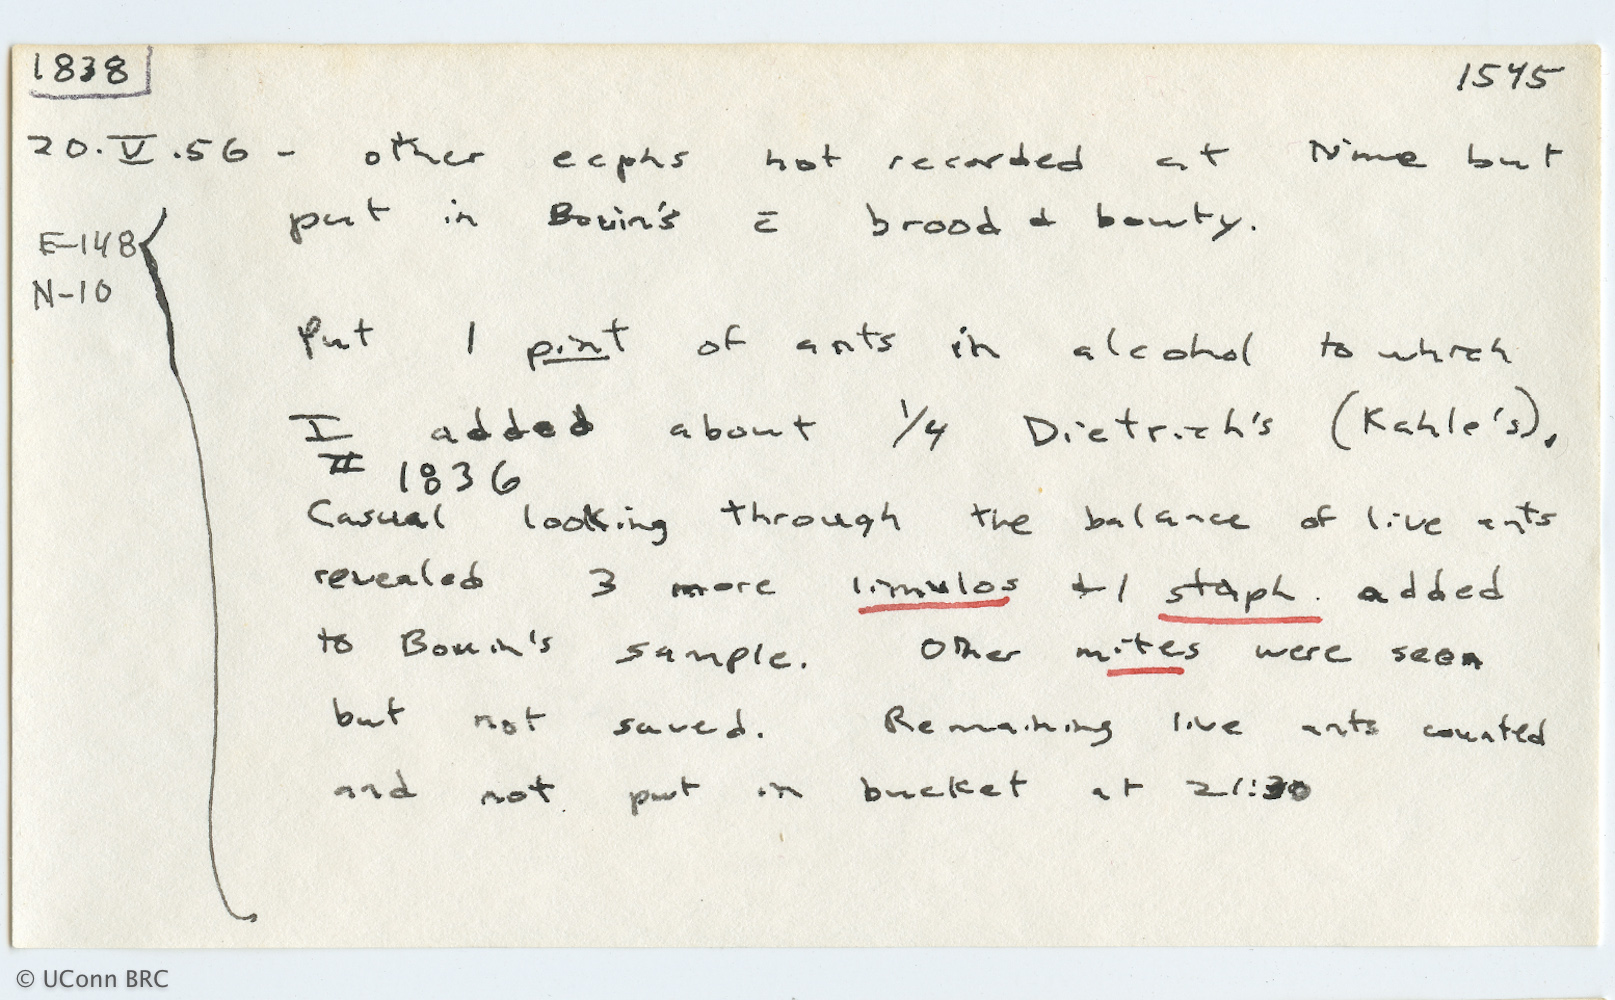 1838
1545
20.V.56 - other ecphs not recorded at time but
put in Bouin's c̄ brood & booty.
E-148
N-10
Put 1 pint of ants in alcohol to which
I added about 1/4 Dietrich's (Kahle's).
II 1836
Casual looking through the balance of live ants
revealed 3 more limulos + 1 staph. added
to Bouin's sample. Other mites were seen
but not saved. Remaining live ants counted
and not put in bucket at 21:30
© UConn BRC